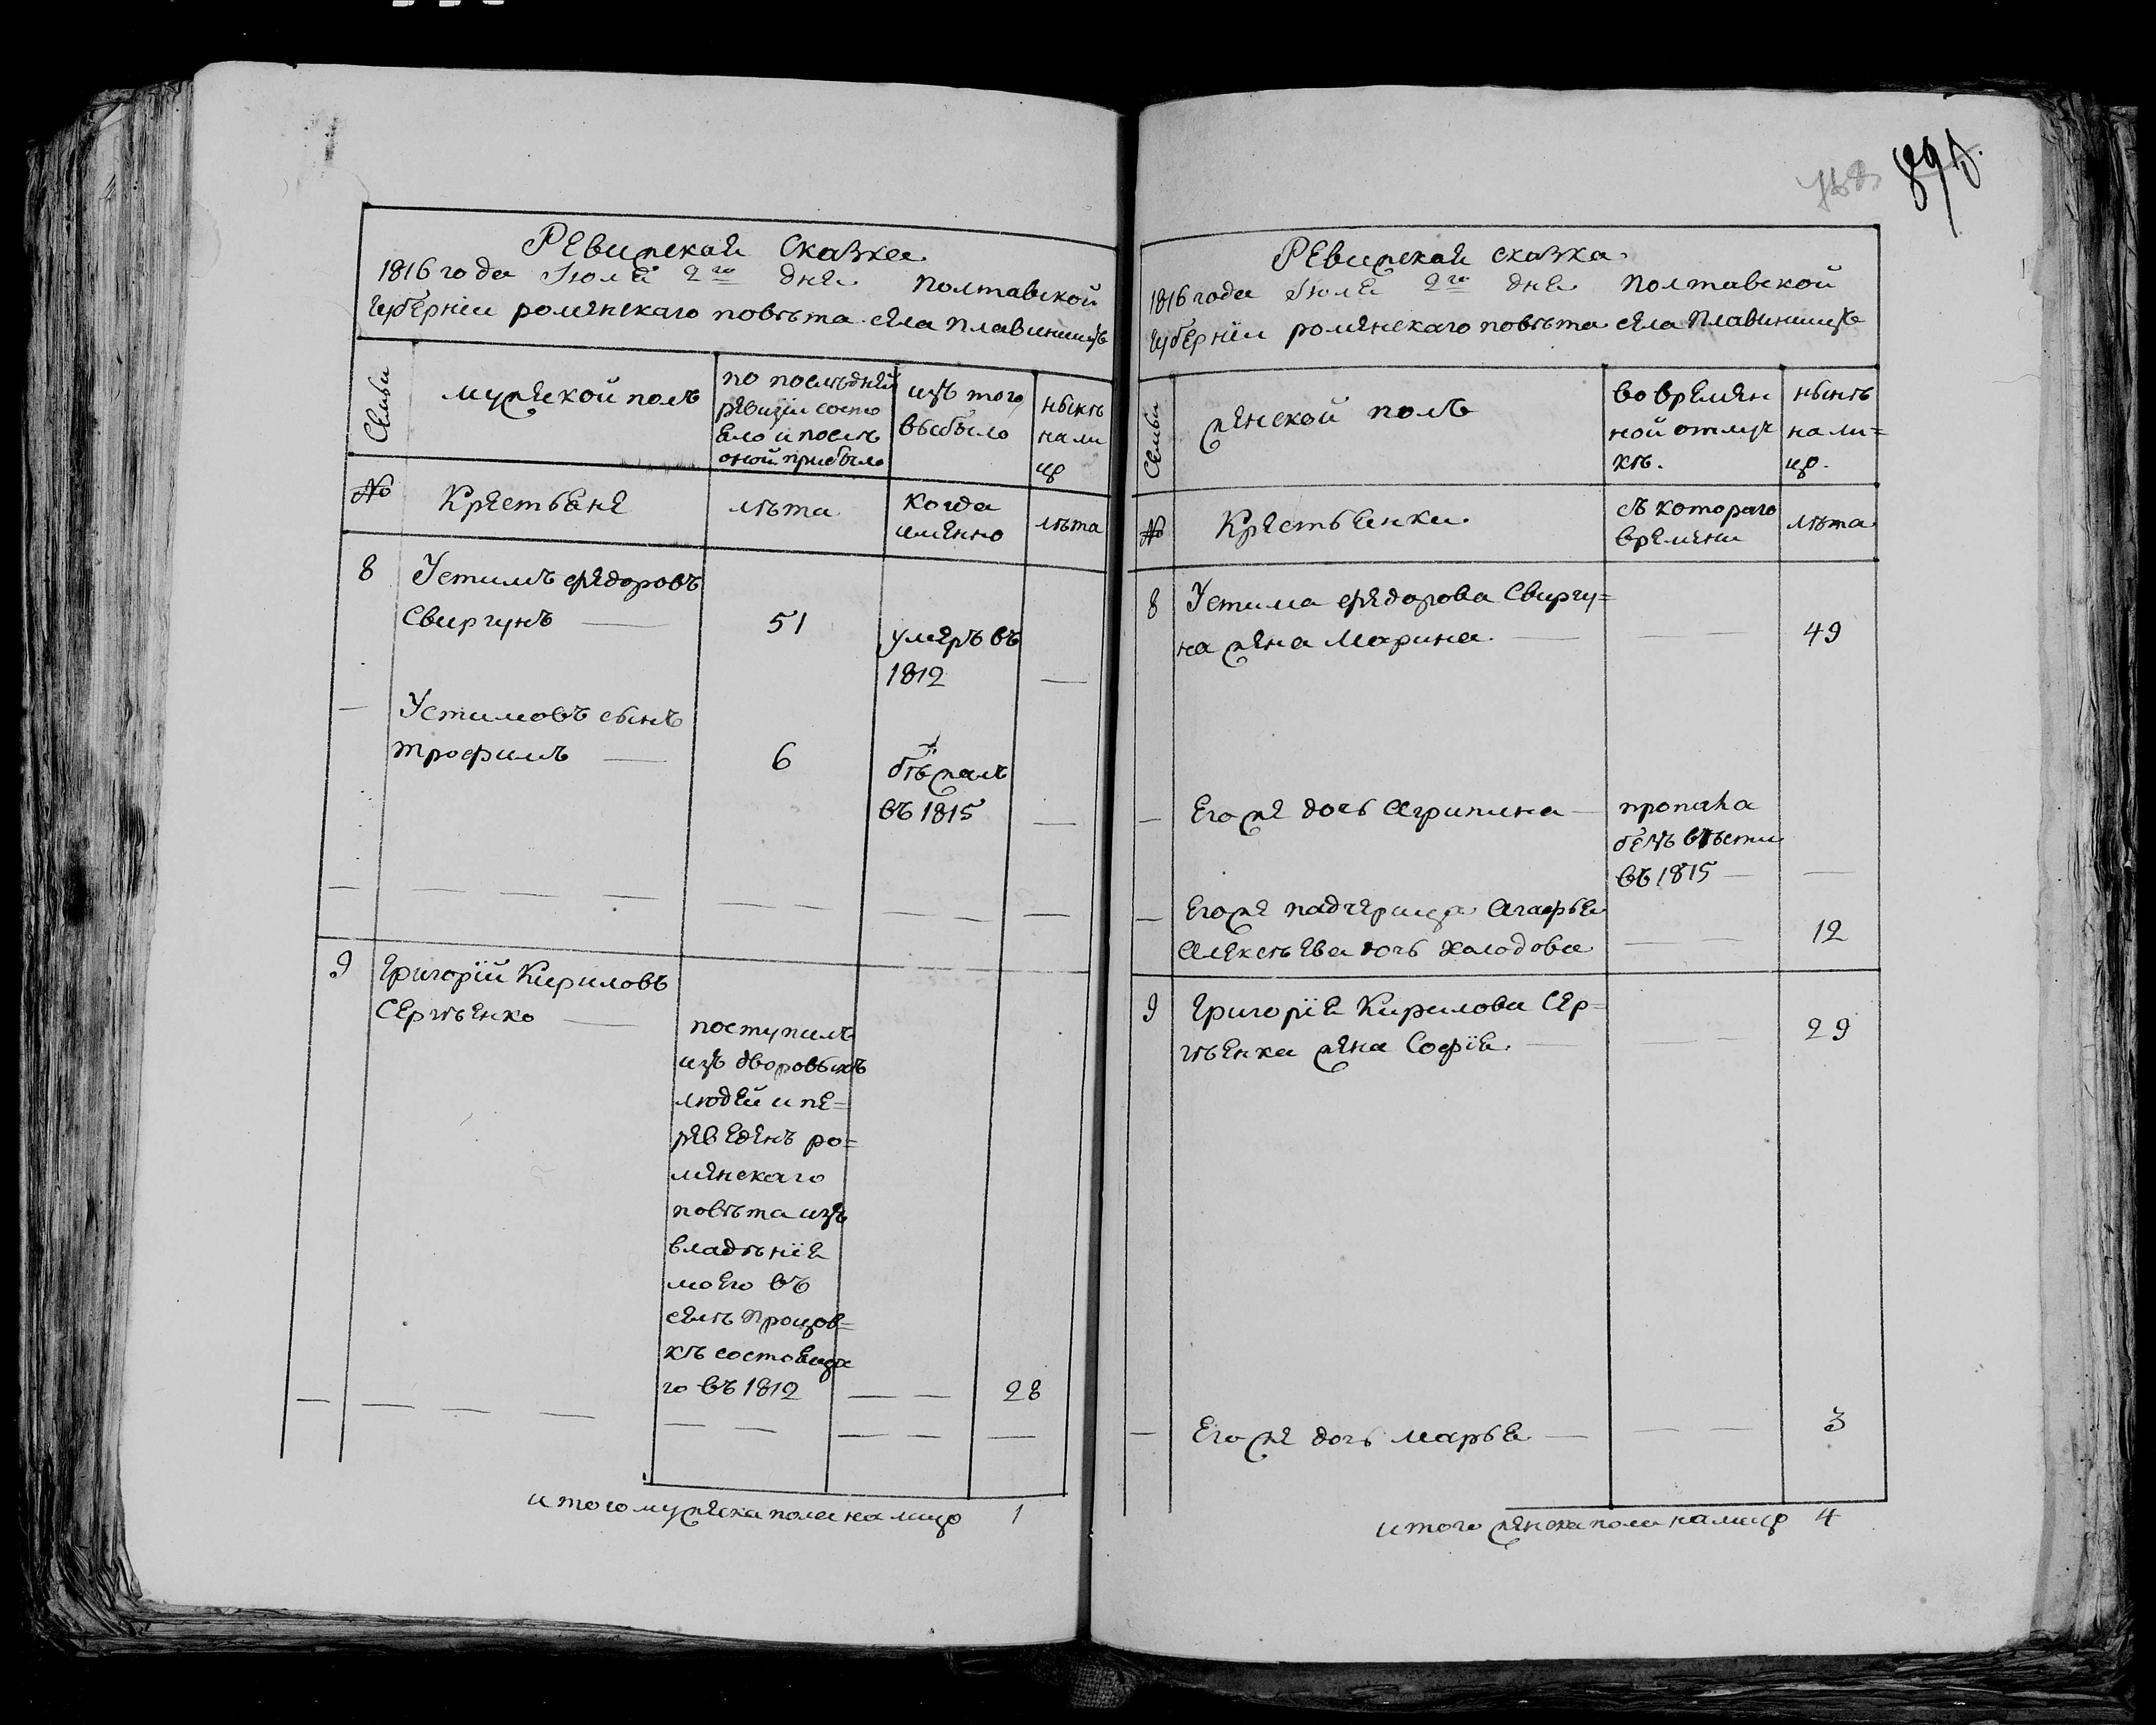 Ревижская Сказка
1816 года Июля 2го дня Полтавской
Губернiи роменскаго повѣта села Плавинищъ
Семьи
мужеской полъ
по послѣдней
ревизiи состо
яло и послѣ
оной прибыло
изъ того
выбыло
нынѣ
на ли
цо
№
Крестьяне
лѣта
когда
именно
лѣта
8
Устимъ Федоровъ
Свиргунъ
51
умеръ въ
1812
Устимовъ сынъ
Трофимъ
6
бѣжалъ
въ 1815
9
Григорiй Кириловъ
Сергѣенко
поступилъ
изъ дворовыхъ
людей и пе=
реведенъ ро=
менскаго
повѣта изъ
владѣнiя
моего въ
селѣ Процов=
кѣ состояща
го въ 1812
28
итого мужеска пола на лицо 1
Ревижская сказка
1816 года Июля 2го дня Полтавской
Губернiи роменскаго повѣта села Плавинищъ
Семьи
женской полъ
во времян
ной отлуч
кѣ.
нынѣ
на ли=
цо.
№
Крестьянки.
съ котораго
времени
лѣта
8
Устима Федорова Свиргу=
на жена Марина.
49
Его же дочь Агрипина
пропала
безъ вѣсти
въ 1815
Его же падчерица Агафья
Алексѣева дочь Халодова
12
9
Григорiя Кирилова Сер=
гѣенка жена Софiя.
29
Его же дочь Марья
3
итого женска пола на лицо 4